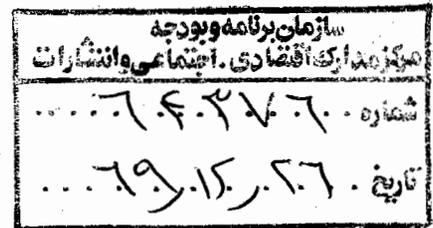 سازمان برنامه و بودجه
مرکز مدارک اقتصادی . اجتماعی و انتشارات
شماره ۶۴۳۷۶۰
تاریخ ۶۹٫۱۲٫۲۶